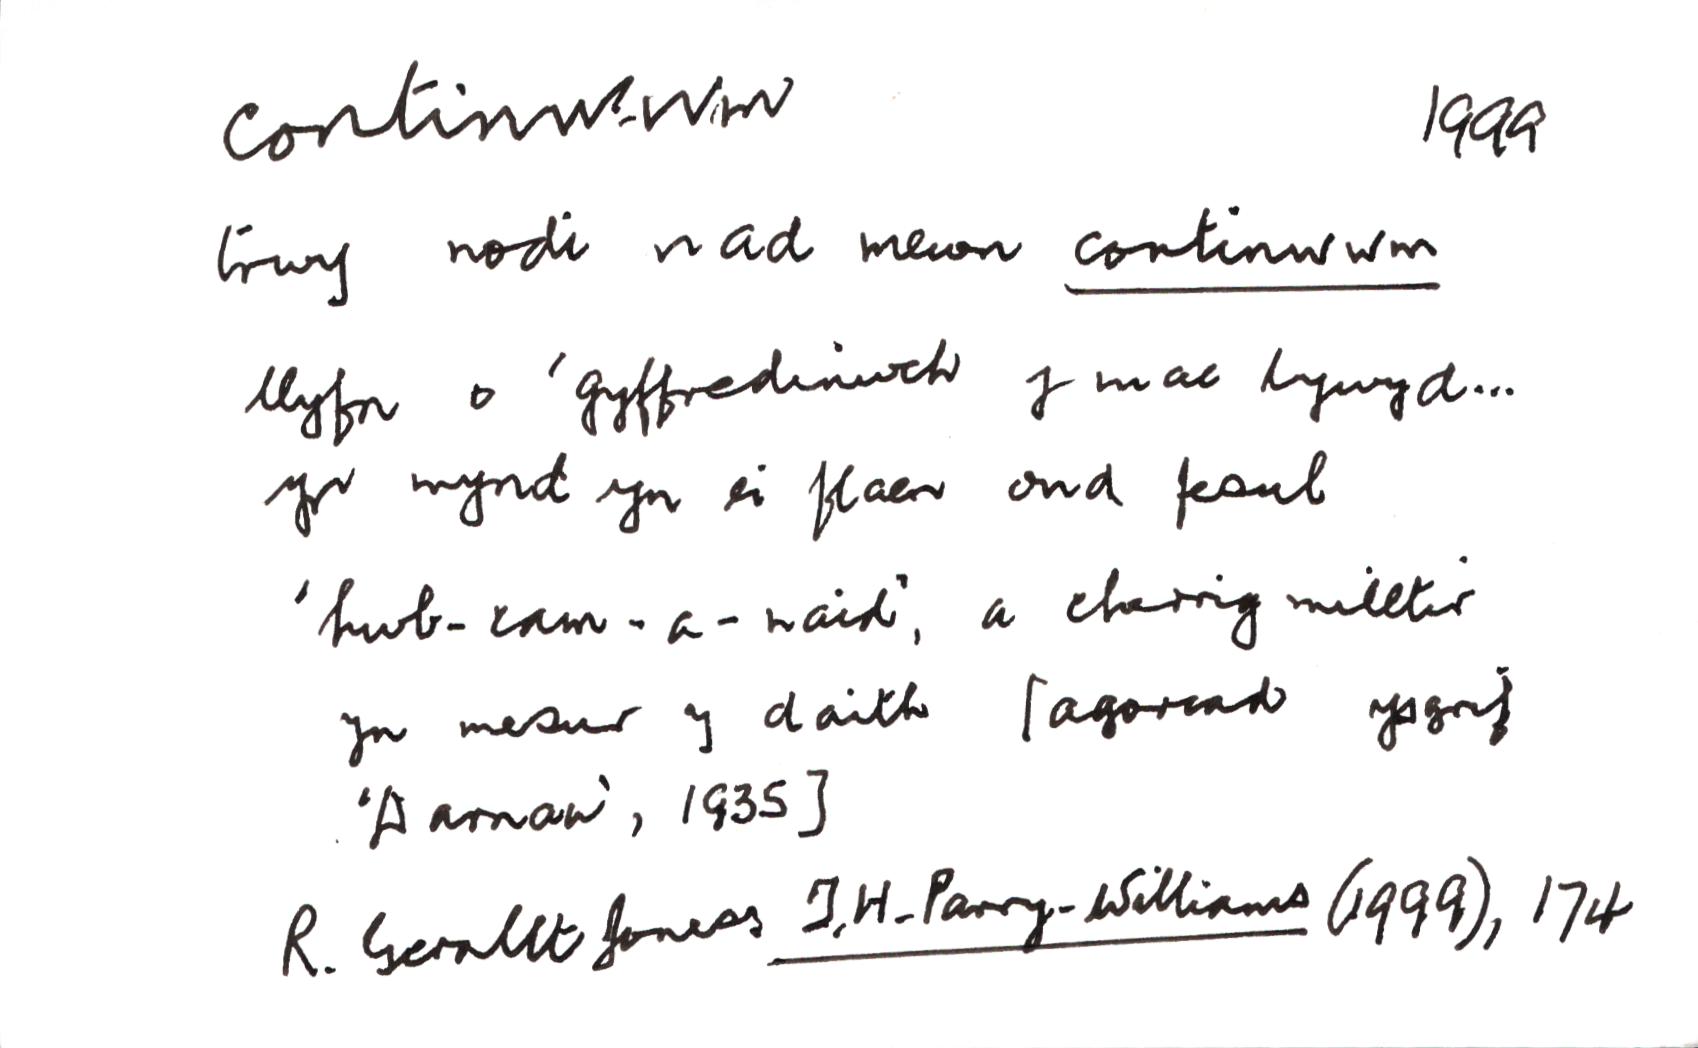 continw-wm 1999
trwy nodi nad mewn continwwm
llyfn o 'gyffredinwch y mae bywyd...
yn mynd yn ei flaen ond fesul
'hwb-cam-a-naid', a cherrig milltir
yn mesur y daith [agoriad ysgrif
'Darnau', 1935]
R. Gerallt Jones T.H. Parry-Williams (1999), 174